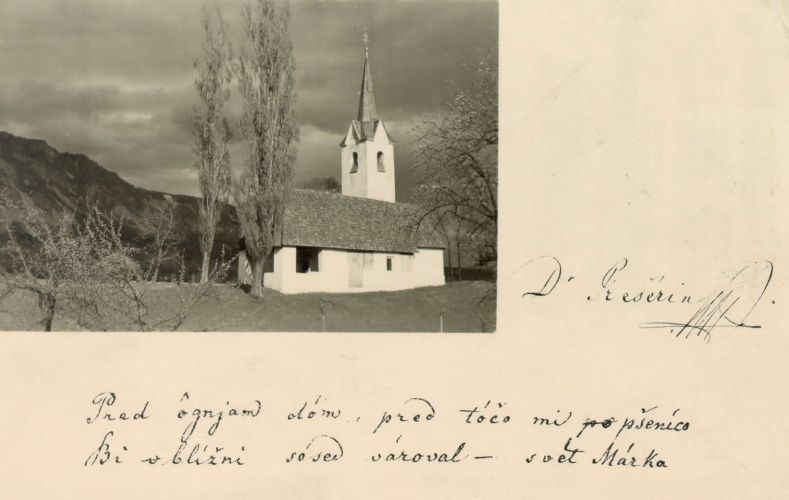 Dr Prešérin
Pred ôgnjam dóm, pred tóčo mi po pšeníco
Bi v blížni sósed vároval – svét Márka